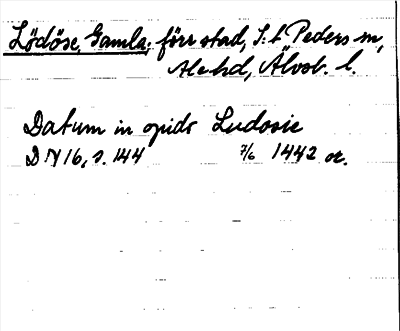 Lödöse, Gamla, förr stad, S:t Peders sn,
Ale hd, Älvsb. l.
Datum in opido Ludosie
DN 16, s. 144 7/6 1442 or.